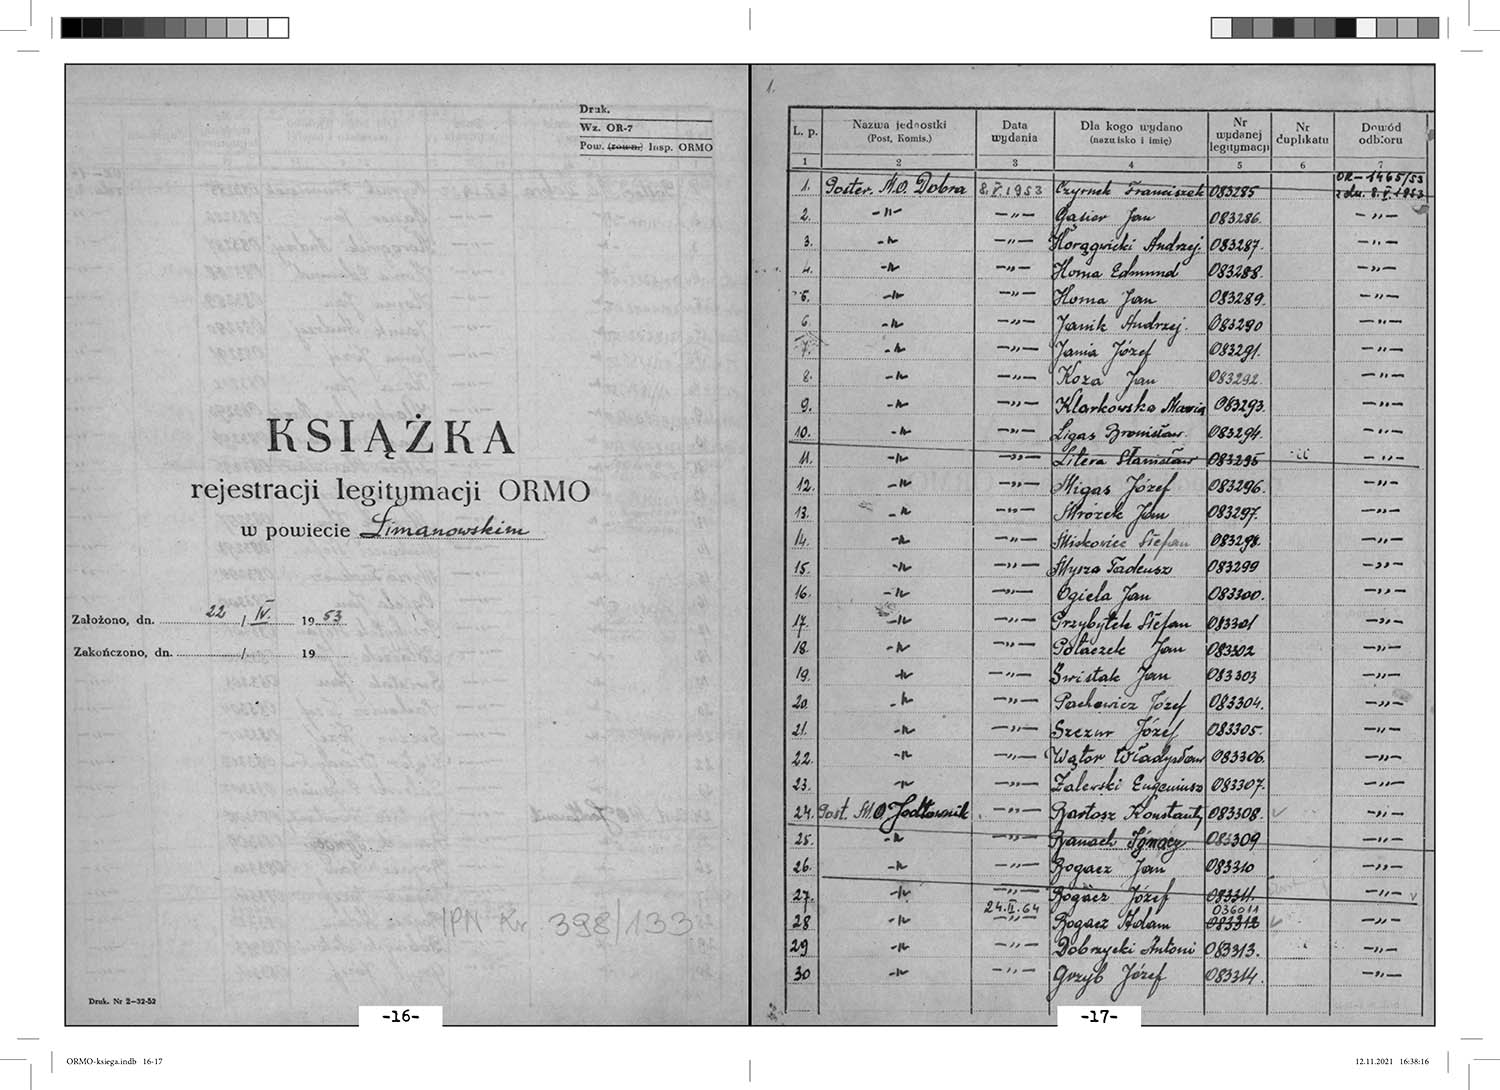 Druk.
Wz. OR-7
Pow. (rown.) Insp. ORMO
KSIĄŻKA
rejestracji legitymacji ORMO
w powiecie Limanowskim
Założono, dn. 22 / IV. 19 53
Zakończono, dn. / 19
IPN Kr 398/133
Druk. Nr 2-32-52
-16-
1.
L. p. Nazwa jednostki (Post, Komis.) Data wydania Dla kogo wydano (nazwisko i imię) Nr wydanej legitymacji Nr duplikatu Dowód odbioru
1 2 3 4 5 6 7
1. Poster. M.O. Dobra 8.V.1953 Czyrnek Franciszek 083285 OR-1465/53 z dn. 8.V.1953
2. -"- -"- Gąsior Jan 083286. -"-
3. -"- -"- Horągwicki Andrzej 083287. -"-
4. -"- -"- Homa Edmund 083288. -"-
5. -"- -"- Homa Jan 083289. -"-
6. -"- -"- Janik Andrzej. 083290 -"-
7. -"- -"- Jania Józef 083291. -"-
8. -"- -"- Koza Jan 083292. -"-
9. -"- -"- Klarkowska Maria 083293. -"-
10. -"- -"- Ligas Bronisław. 083294. -"-
11. -"- -"- Litera Stanisław 083295 -"-
12. -"- -"- Migas Józef 083296. -"-
13. -"- -"- Mrózek Jan 083297. -"-
14. -"- -"- Miskowiec Stefan 083298. -"-
15. -"- -"- Mysza Tadeusz 083299 -"-
16. -"- -"- Ogiela Jan 083300. -"-
17. -"- -"- Przybyłek Stefan 083301 -"-
18. -"- -"- Potaczek Jan 083302 -"-
19. -"- -"- Świstak Jan 083303 -"-
20. -"- -"- Pachowicz Józef 083304. -"-
21. -"- -"- Szczur Józef 083305. -"-
22. -"- -"- Wątor Władysław 083306. -"-
23. -"- -"- Zalewski Eugeniusz 083307. -"-
24. Post. M.O Jodłownik -"- Bartosz Konstanty 083308. -"-
25. -"- -"- Banach Ignacy 083309 -"-
26. -"- -"- Bogacz Jan 083310 -"-
27. -"- -"- Bogacz Józef 083311. -"- v
24.II.64 036011
28 -"- -"- Bogacz Adam 083312 -"-
29 -"- -"- Dobrzycki Antoni 083313. -"-
30 -"- -"- Grzyb Józef 083314. -"-
-17-
ORMO-ksiega.indb 16-17
12.11.2021 16:38:16